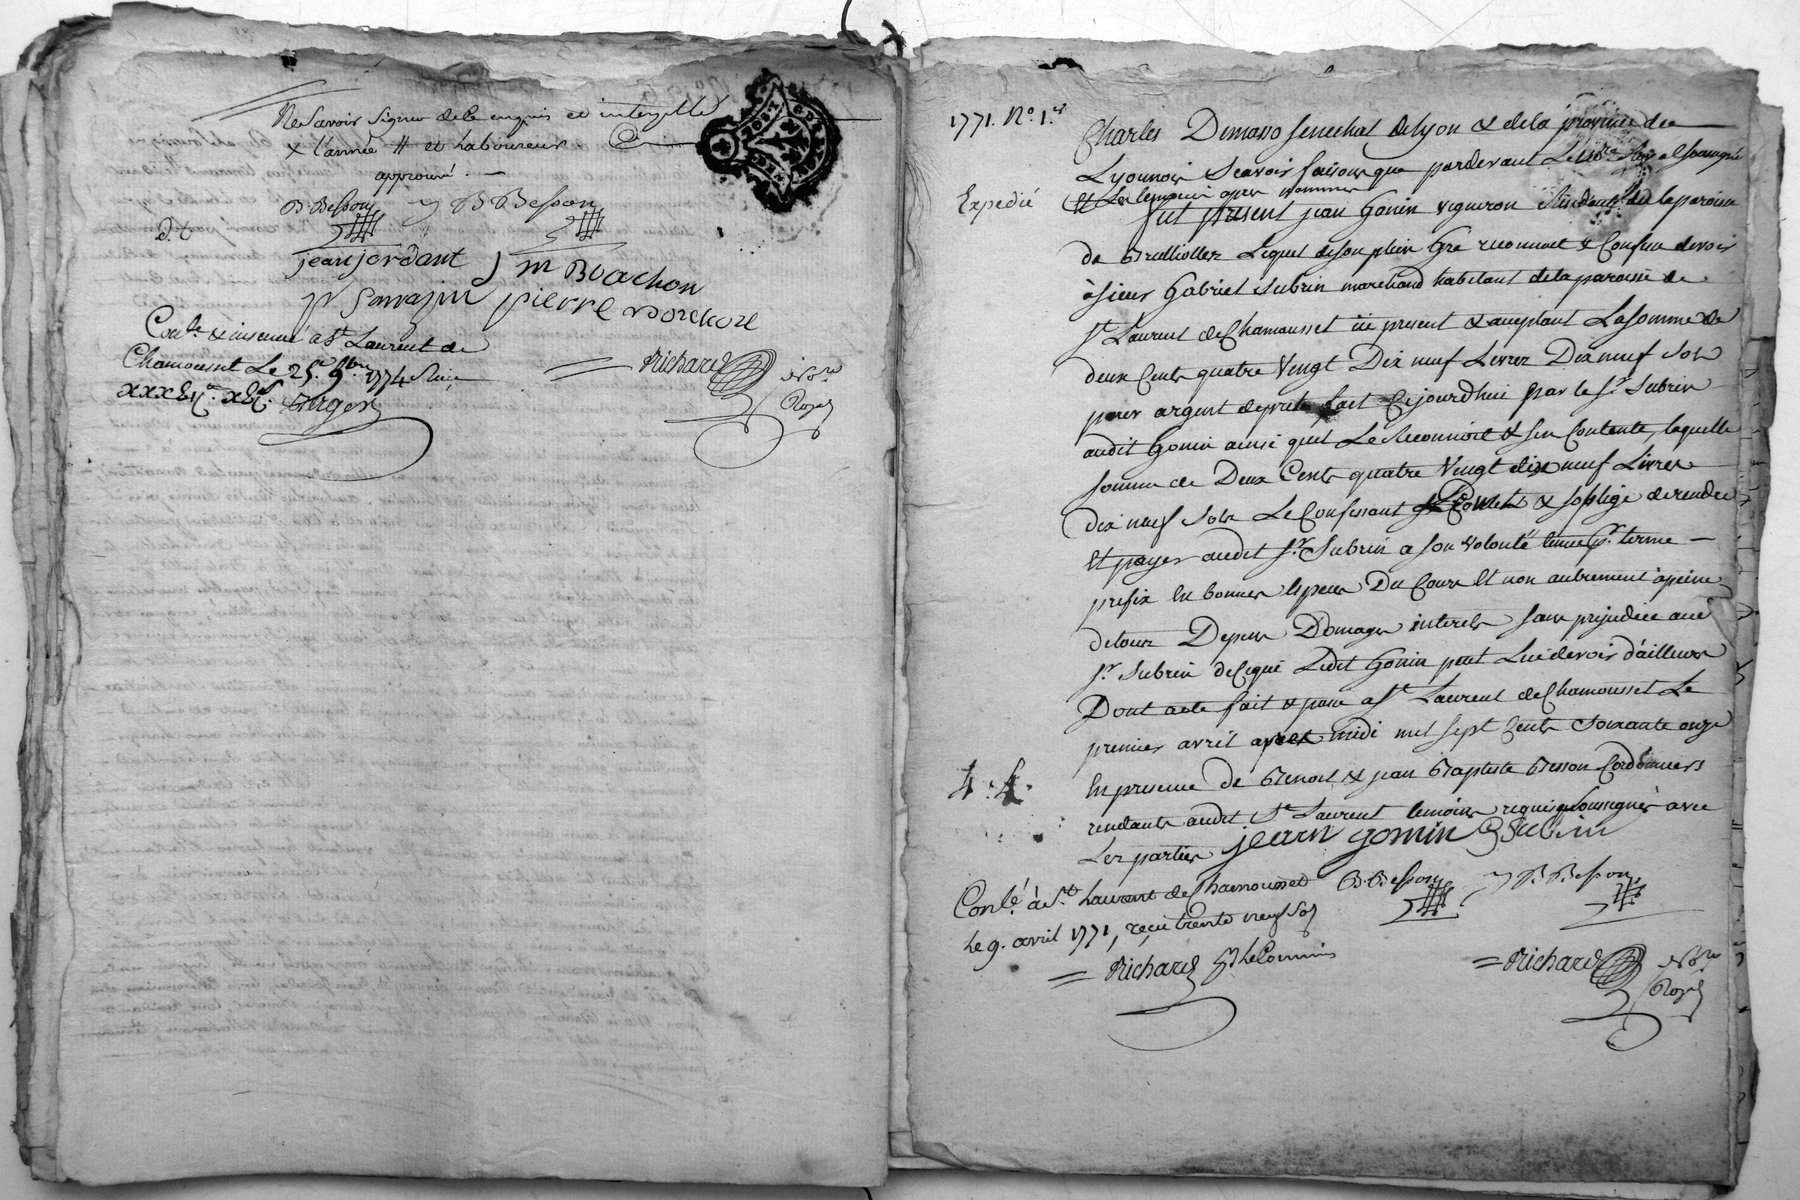 Ne Savoir Signer de le enquis et interpellé
x l'année # et Laboureur
approuvé . —
B. Besson B Besson
jean jordant J m Buachon
pierre
Con.lé & insinué a St. Laurent de
Chamousset Le 25.e 9.bre 1774 Reçu
Richard No.re
Royal
1771. No. 1.er
Charles Demasso senechal de Lyon & de la province de
Lyonnois Scavoir faisons que pardevant Le no.re Roy.al soussigné
Expedié
et Les temoins apres nommes
fut present jean Gonin vigneron Residant de la paroisse
de Brullioles Lequel de son plein Gré reconnoit & Confesse devoir
à sieur Gabriel Subrin marchand habitant de la paroisse de
St. Laurent de Chamousset ici present & acceptant La somme de
deux Cents quatre Vingt Dix neuf Livres Dix neuf sols
pour argent de preté fait Cejourd'hui par le Sr. Subrin
audit Gonin ainsi qu'il Le Reconnoit & s'en Contente, laquelle
somme de Deux Cents quatre Vingt dix neuf Livres
dix neuf sols Le Confessant promet & s'oblige de rendre
et payer audit Sr. Subrin a son volonté terme
prefix en bonnes Especes Du Cours Et non autrement à peine
de tous Depens Domages interets sans prejudice au
Sr. Subrin de Ce que Ledit Gonin peut Lui devoir d'ailleurs
Dont acte fait & passé a St. Laurent de Chamousset Le
premier avril apres midi mil sept Cents soixante onze
En presence de Benoit & jean Baptiste Besson Cordonniers
residants audit St. Laurent temoins requis & soussignés avec
Les parties jean gonin G Subrin
Con.lé à St. Laurent de Chamousset B. Besson B. Besson
Le 9. avril 1771, reçu trente neuf sols
Richard Richard No.re
Royal